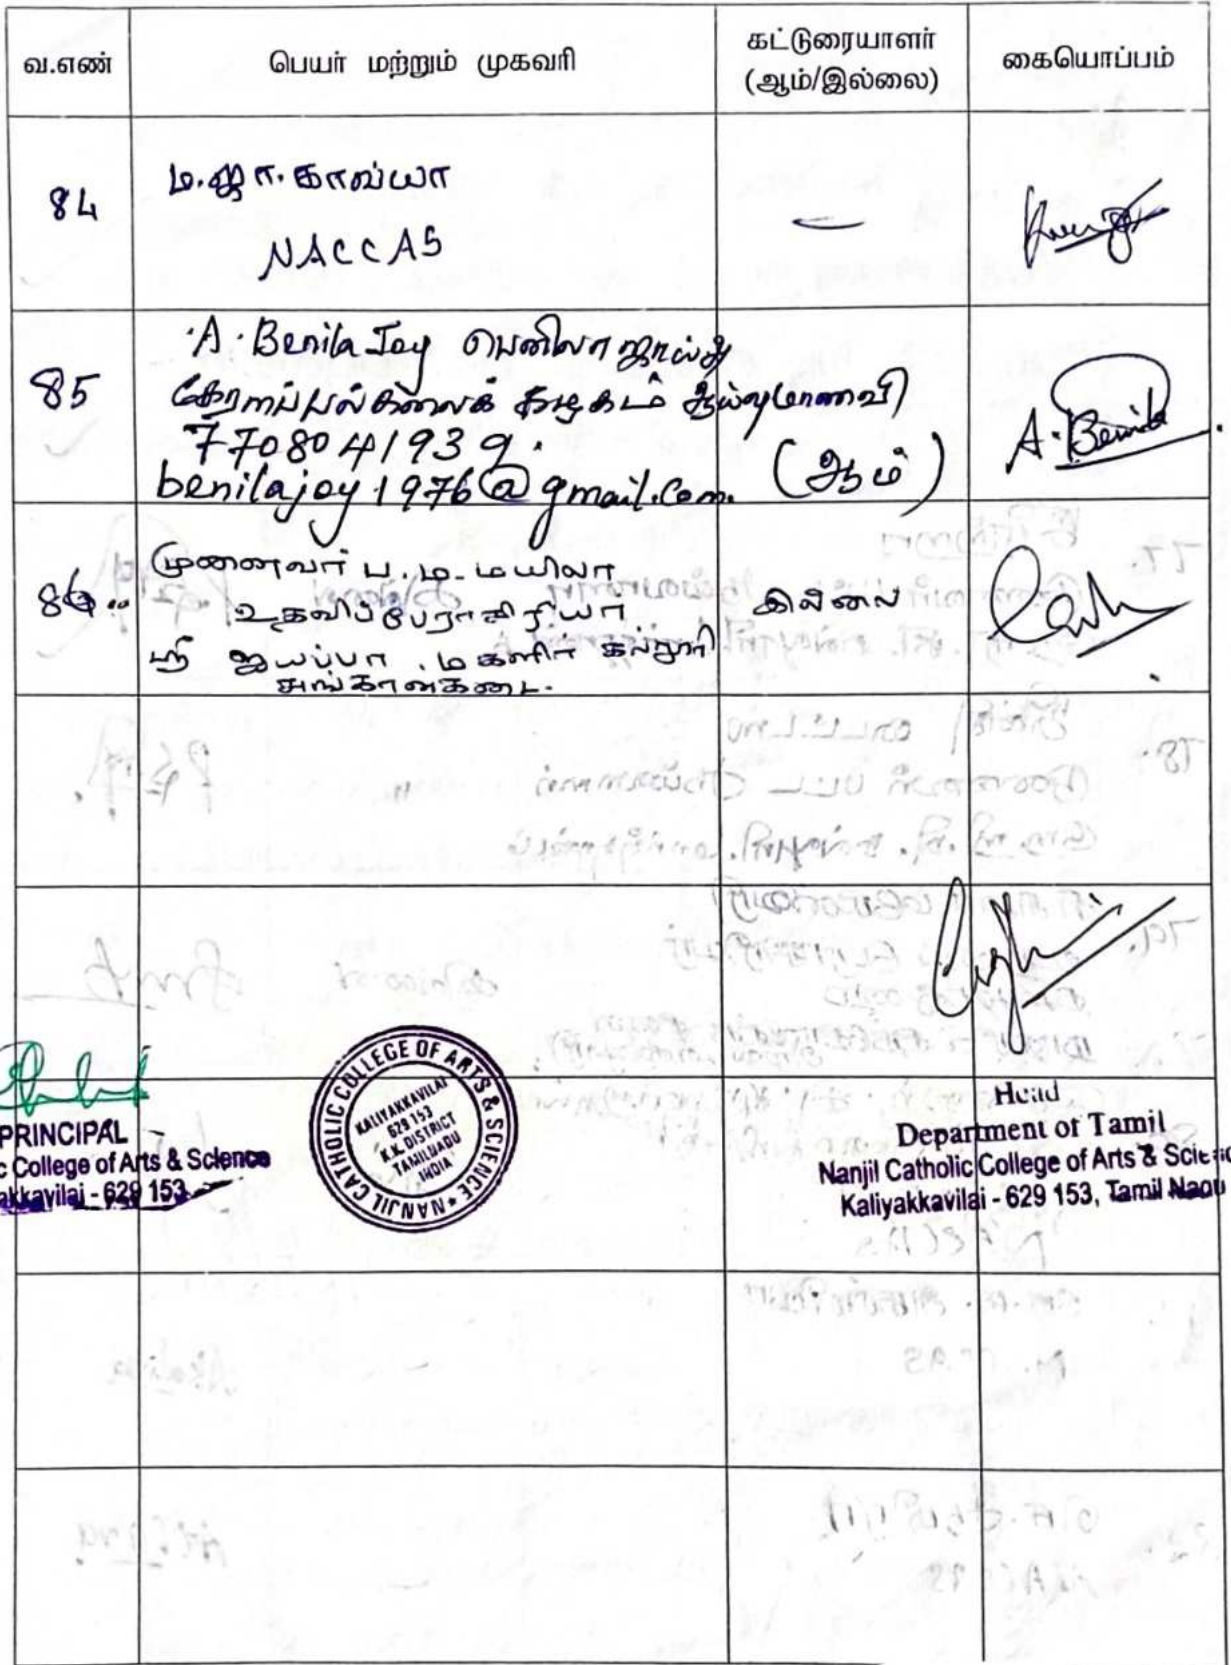 வ.எண்
பெயர் மற்றும் முகவரி
கட்டுரையாளர்
(ஆம்/இல்லை)
கையொப்பம்
84
ம.ஜா.காவ்யா
NACCAS
—
85
A. Benila Joy பெனிலா ஜாய்
கேரளப்பல்கலைக் கழகம் ஆய்வுமாணவி
7708041939.
benilajoy1976@gmail.com.
(ஆம்)
A. Benila
86..
முனைவர் ப.ம.மயிலா
உதவிப்பேராசிரியர்
ஸ்ரீ ஐயப்பா மகளிர் கல்லூரி
சுங்கான்கடை.
இல்லை
PRINCIPAL
c College of Arts & Science
akkavilai - 629 153
NANJIL CATHOLIC COLLEGE OF ARTS & SCIENCE
KALIYAKKAVILAI
629 153
K.K. DISTRICT
TAMILNADU
INDIA
Head
Department of Tamil
Nanjil Catholic College of Arts & Scienc
Kaliyakkavilai - 629 153, Tamil Nadu